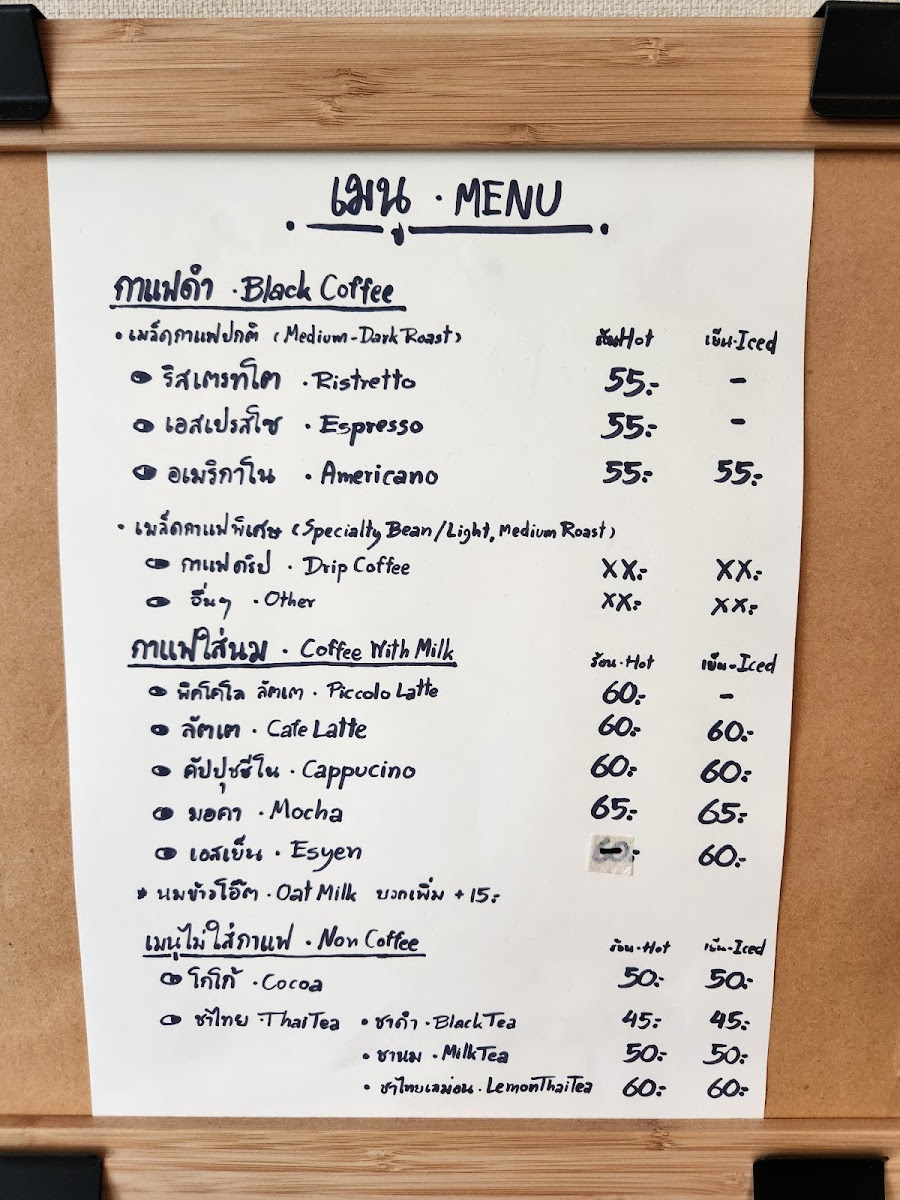 เมนู · MENU
กาแฟดำ · Black Coffee
• เมล็ดกาแฟปกติ (Medium-Dark Roast) ร้อน·Hot เย็น·Iced
ริสเตรทโต · Ristretto 55.- -
เอสเปรสโซ · Espresso 55.- -
อเมริกาโน · Americano 55.- 55.-
• เมล็ดกาแฟพิเศษ (Specialty Bean/Light, Medium Roast)
กาแฟดริป · Drip Coffee XX.- XX.-
อื่นๆ · Other XX.- XX.-
กาแฟใส่นม · Coffee With Milk ร้อน·Hot เย็น-Iced
พิคโคโล ลัตเต · Piccolo Latte 60.- -
ลัตเต · Cafe Latte 60.- 60.-
คัปปุชชีโน · Cappucino 60.- 60.-
มอคา · Mocha 65.- 65.-
เอสเย็น · Esyen - 60.-
* นมข้าวโอ๊ต · Oat Milk บวกเพิ่ม +15.-
เมนูไม่ใส่กาแฟ · Non Coffee ร้อน·Hot เย็น·Iced
โกโก้ · Cocoa 50.- 50.-
ชาไทย · Thai Tea • ชาดำ · Black Tea 45.- 45.-
• ชานม · Milk Tea 50.- 50.-
• ชาไทยเลม่อน · Lemon Thai Tea 60.- 60.-